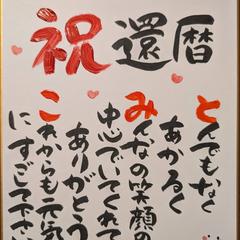 祝還暦
とんでもなく
あかるく
みんなの笑顔の
中心でいてくれて
ありがとう
これからも元気
にすごして下さい